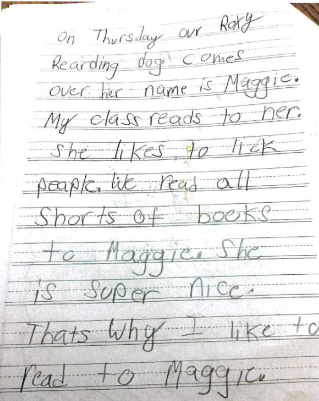 On Thursday our Roxy
Rearding dog comes
over her name is Maggie.
My class reads to her.
She likes to lick
peaple. We read all
Shorts of books
to Maggie. She
is super nice.
Thats why I like to
read to Maggie.